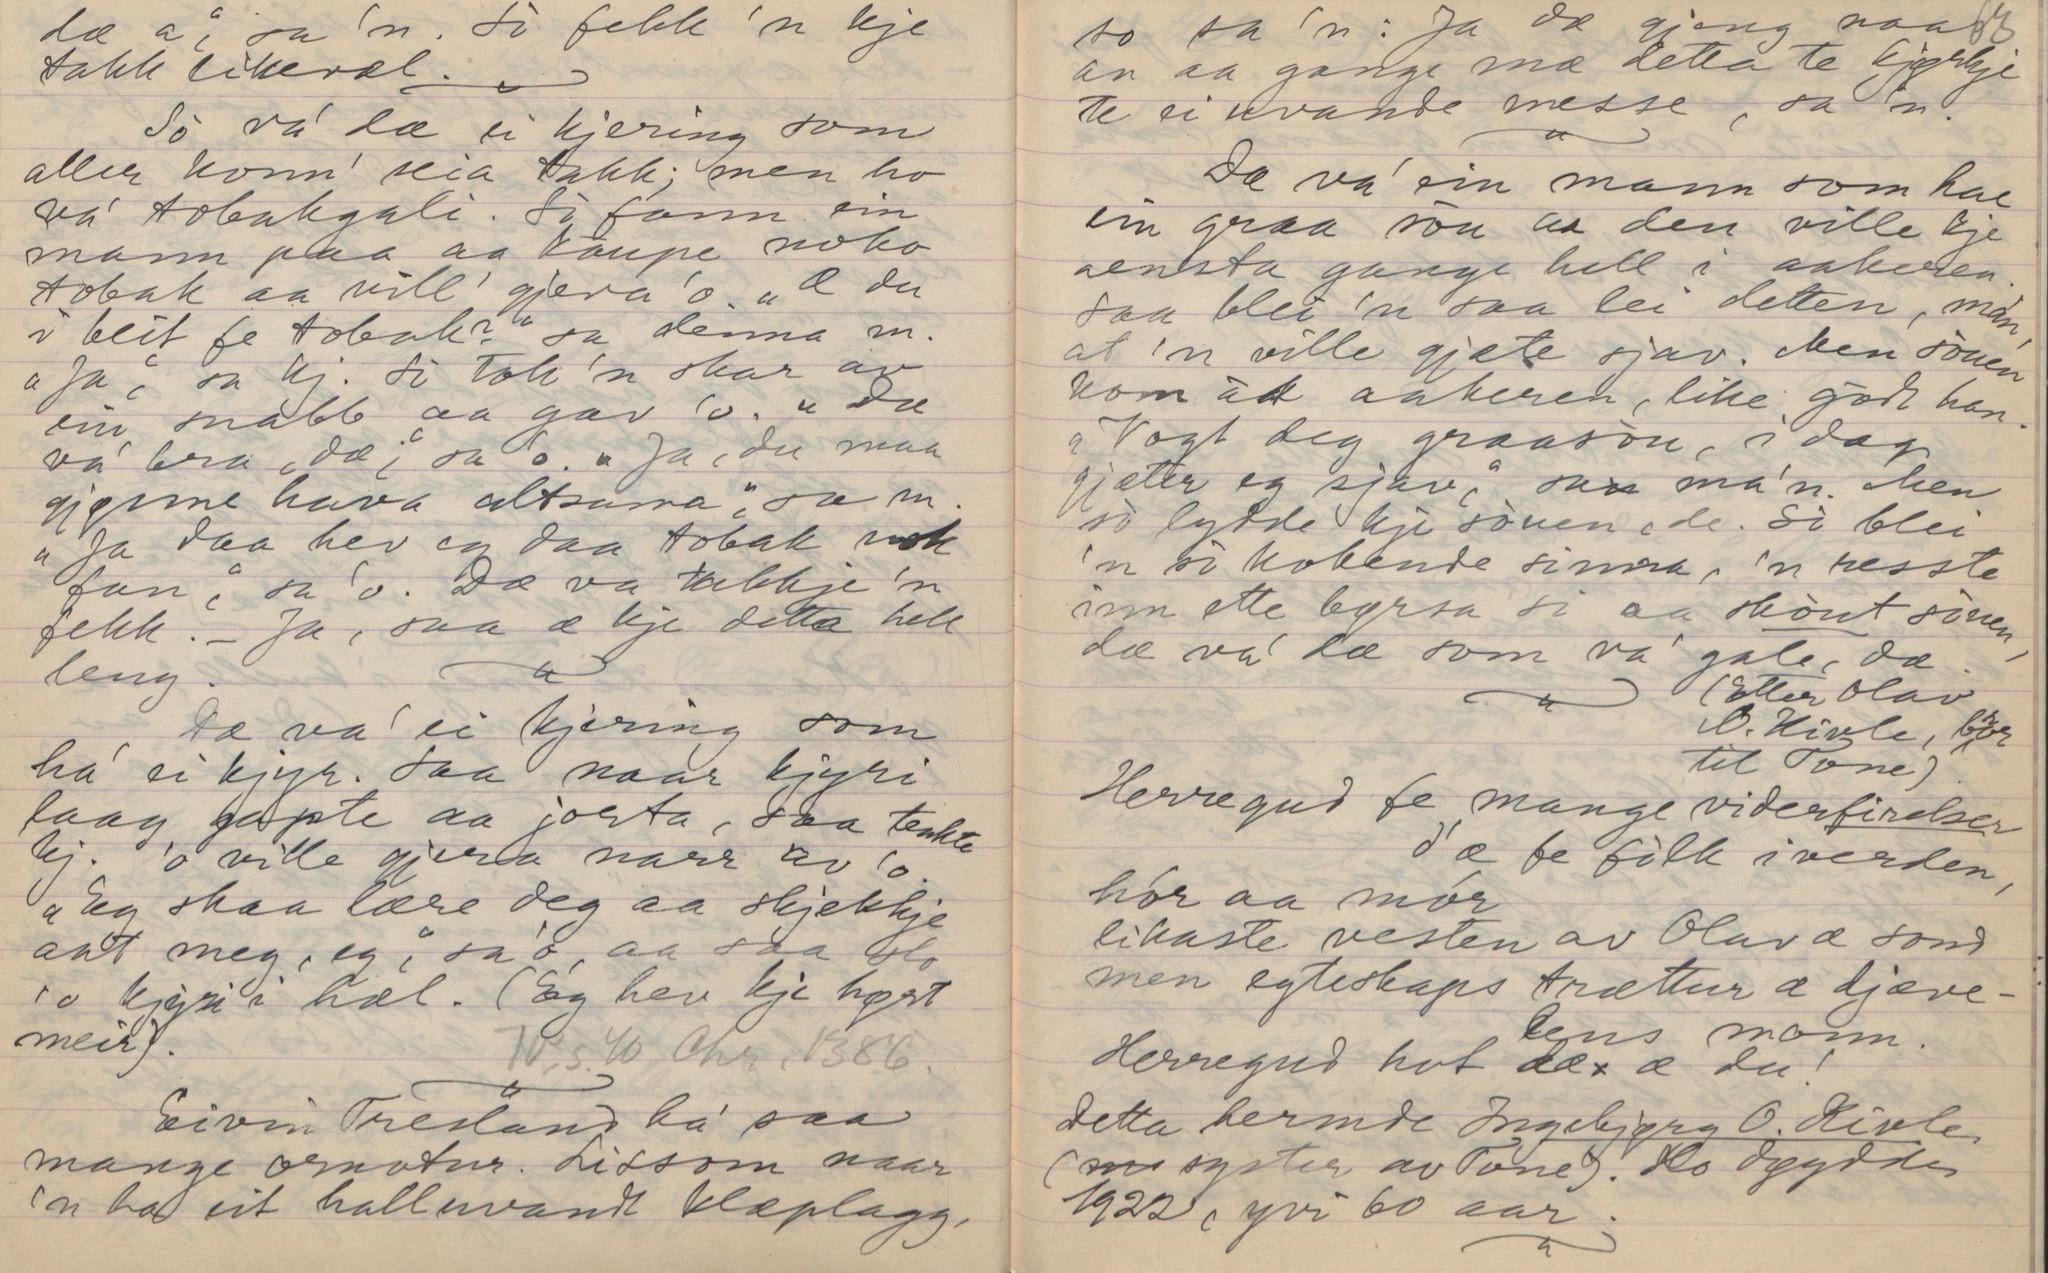 dæ a", sa 'n. Sò fekk 'n kje
takk likevæl.
Sò vá dæ ei kjering som
aller konn' seia takk; men ho
vá tobakgali. Sò fann ein
mann paa aa kaupe noko
tobak aa vill' gjeva 'o. "Æ du
i beit fe tobak?" sa denna m.
"Ja", sa kj. Sò tok 'n skar av
ein snabb aa gav 'o. "Dæ
vá bra, dæ", sa 'o. "Ja, du maa
gjønne hava altsama", sa m.
"Ja daa hev eg daa tobak nok
fan", sa 'o. Dæ va takkje 'n
fekk. – Ja, saa æ kje detta hell
leng.
Dæ va' ei kjering som
há ei kjyr. Saa naar kjyri
laag gapte aa jorta, saa tenkte
kj. 'o ville gjera narr av 'o.
"Eg skaa lære deg aa skjekkje
aat meg, eg", sa 'o, aa saa slo
'o kjyri i hæl. (Eg hev kje hørt
meir).
N.s. 40 Chr. 1386.
Eivin Tresland há saa
mange ornotur. Lissom naar
'n ha eit halluvandt klæplagg,
63
so sa 'n: Ja dæ gjeng naa
an aa gange mæ detta te kjørkje
te ei uvande messe, sa 'n.
Dæ vá ein mann som hae
ein graa sòu aa den ville kje
aensta gange hell i aakeren.
Saa blei 'n saa lei detten, mán,
at 'n ville gjæte sjav. Men sòuen
kom át aakeren, like godt han.
"Vogt deg graasòu, i dag
gjæter eg sjav", sa má'n. Men
sò lydde kje sòuen, de. Sò blei
'n sò kobende sinna, 'n resste
inn ette børsa si aa skòut sòuen,
dæ vá dæ som vá gale, dæ.
(Etter Olav
O. Kivle, bror
til Tone)
Herregud fe mange viderfirelser
d'æ fe fólk i verden,
hór aa mór
likaste vesten av Olav æ sond
men egteskaps trættur æ djæve-
lens monn.
Herregud hot dæ æ du!
Detta hermde Ingebjørg O. Kivle
(syster av Tone). Ho døydde
1922, yvi 60 aar.